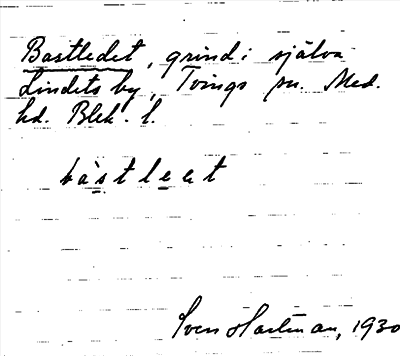 Bastledet, grind i själva
Lindets by, Tvings sn. Med.
hd. Blek. l.
bàstleet
Sven Hartman, 1930